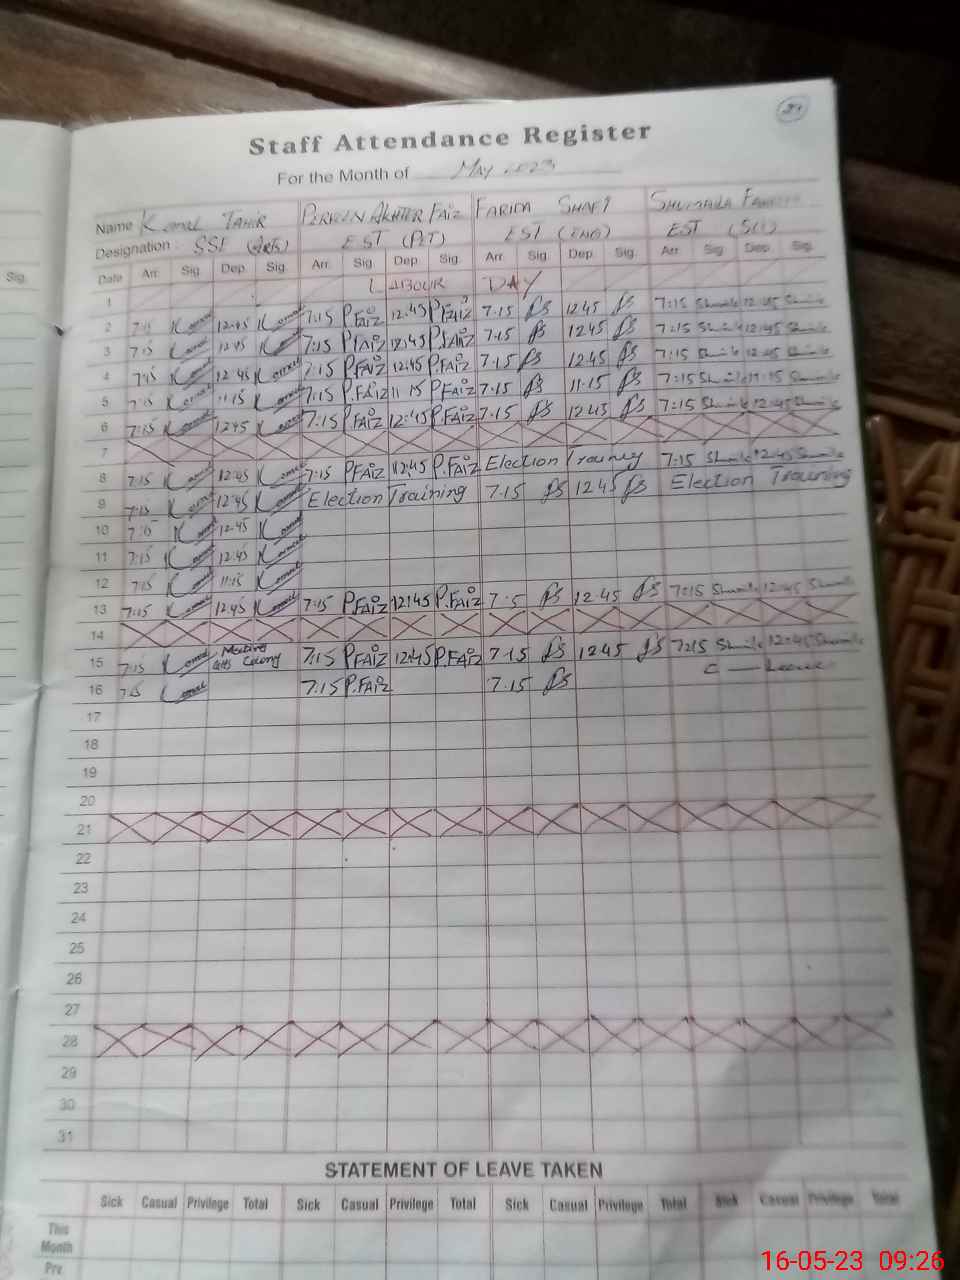 27
Staff Attendance Register
For the Month of May 2023
Name Komal TAHIR PERVEEN AKHTER FAIZ FARIDA SHAFI SHUMAILA
Designation : SSE (Arts) EST (PET) EST (ENG) EST (SCI)
Sig.
Date Arr. Sig. Dep. Sig. Arr. Sig. Dep. Sig. Arr. Sig. Dep. Sig. Arr. Sig. Dep. Sig.
1 LABOUR DAY
2 7:15 Komal 12:45 Komal 7:15 P.FAIZ 12:45 P.FAIZ 7.15 fs 12 45 fs 7:15 Shumaila 12:45 Shumaila
3 7:15 Komal 12:45 Komal 7:15 P.FAIZ 12:45 P.FAIZ 7.15 fs 12 45 fs 7:15 Shumaila 12:45 Shumaila
4 7:15 Komal 12:45 Komal 7:15 P.FAIZ 12:45 P.FAIZ 7.15 fs 12 45 fs 7:15 Shumaila 12:45 Shumaila
5 7:15 Komal 11:15 Komal 7:15 P.FAIZ 11 15 P.FAIZ 7.15 fs 11.15 fs 7:15 Shumaila 11:15 Shumaila
6 7:15 Komal 12:45 Komal 7:15 P.FAIZ 12:45 P.FAIZ 7.15 fs 12.45 fs 7:15 Shumaila 12:45 Shumaila
7
8 7:15 Komal 12:45 Komal 7:15 P.FAIZ 12:45 P.FAIZ Election Training 7:15 Shumaila 12:45 Shumaila
9 7:15 Komal 12:45 Komal Election Training 7.15 fs 12 45 fs Election Training
10 7:15 Komal 12:45 Komal
11 7:15 Komal 12:45 Komal
12 7:15 Komal 11:15 Komal
13 7:15 Komal 12:45 Komal 7:15 P.FAIZ 12:45 P.FAIZ 7.15 fs 12.45 fs 7:15 Shumaila 12:45 Shumaila
14
15 7:15 Komal Meeting GHS Colony 7:15 P.FAIZ 12:45 P.FAIZ 7.15 fs 12 45 fs 7:15 Shumaila 12:45 Shumaila
16 7:15 Komal 7:15 P.FAIZ 7.15 fs C — Leave
17
18
19
20
21
22
23
24
25
26
27
28
29
30
31
STATEMENT OF LEAVE TAKEN
Sick Casual Privilege Total Sick Casual Privilege Total Sick Casual Privilege Total Sick Casual Privilege Total
This
Month
Prv.
16-05-23 09:26